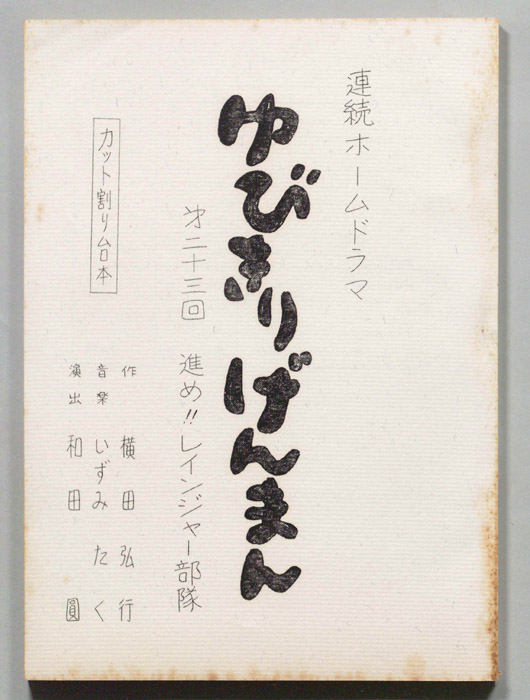 連続ホームドラマ
ゆびきりげんまん
第二十三回 進め!!レインジャー部隊
カット割り台本
作 横田弘行
音楽 いずみたく
演出 和田圓